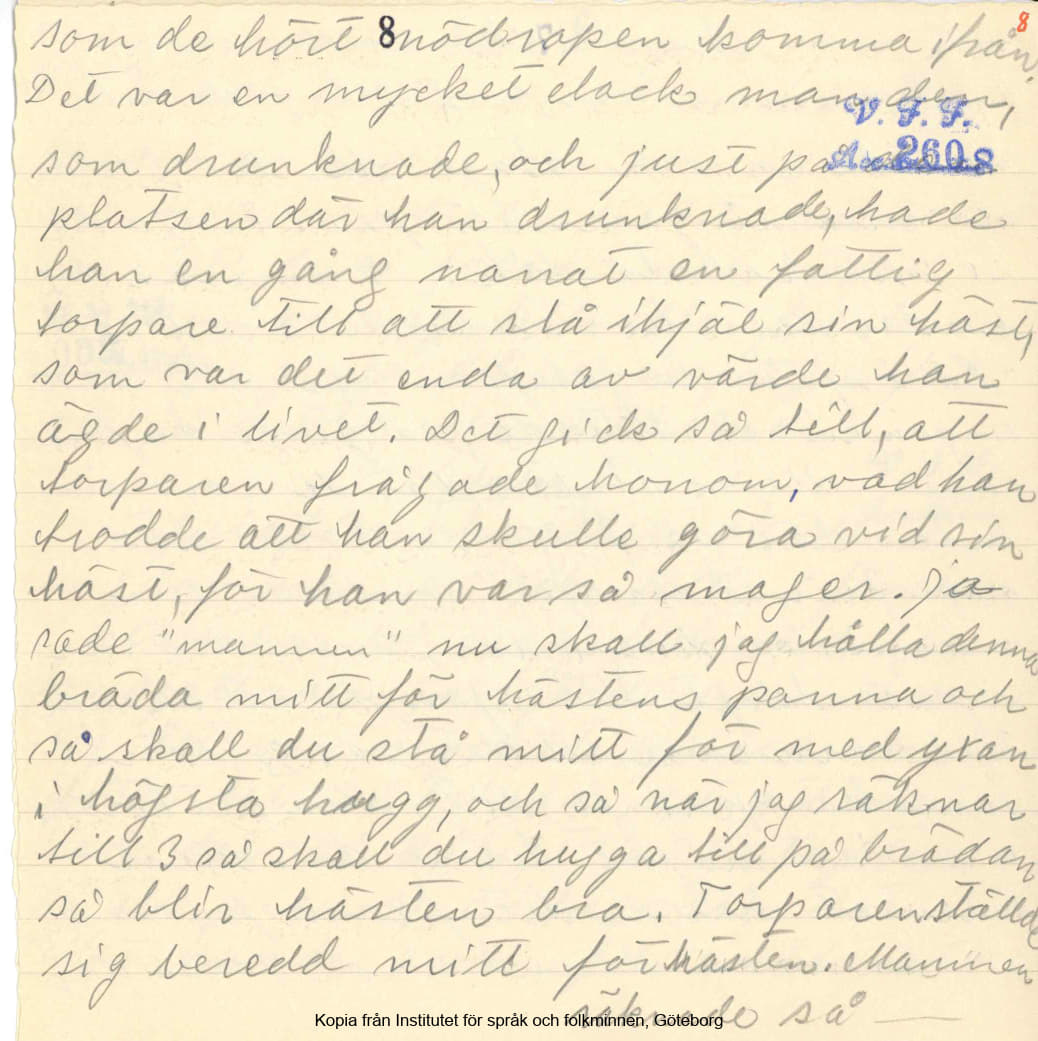 8
som de hört 8 nödropen komma ifrån.
Det var en mycket elack man den,
V. F. F.
som drunknade, och just på
Acc. 2608
platsen där han drunknade, hade
han en gång narrat en fattig
torpare till att slå ihjäl sin häst,
som var det enda av värde han
ägde i livet. Det gick så till, att
torparen frågade honom, vad han
trodde att han skulle göra vid sin
häst, för han var så mager. Ja
sade "mannen" nu skall jag hålla denna
bräda mitt för hästens panna och
så skall du stå mitt för med yxan
i högsta hugg, och så när jag räknar
till 3 så skall du hugga till på brädan
så blir hästen bra. Torparen ställde
sig beredd mitt för hästen. Mannen
räknade så —
Kopia från Institutet för språk och folkminnen, Göteborg